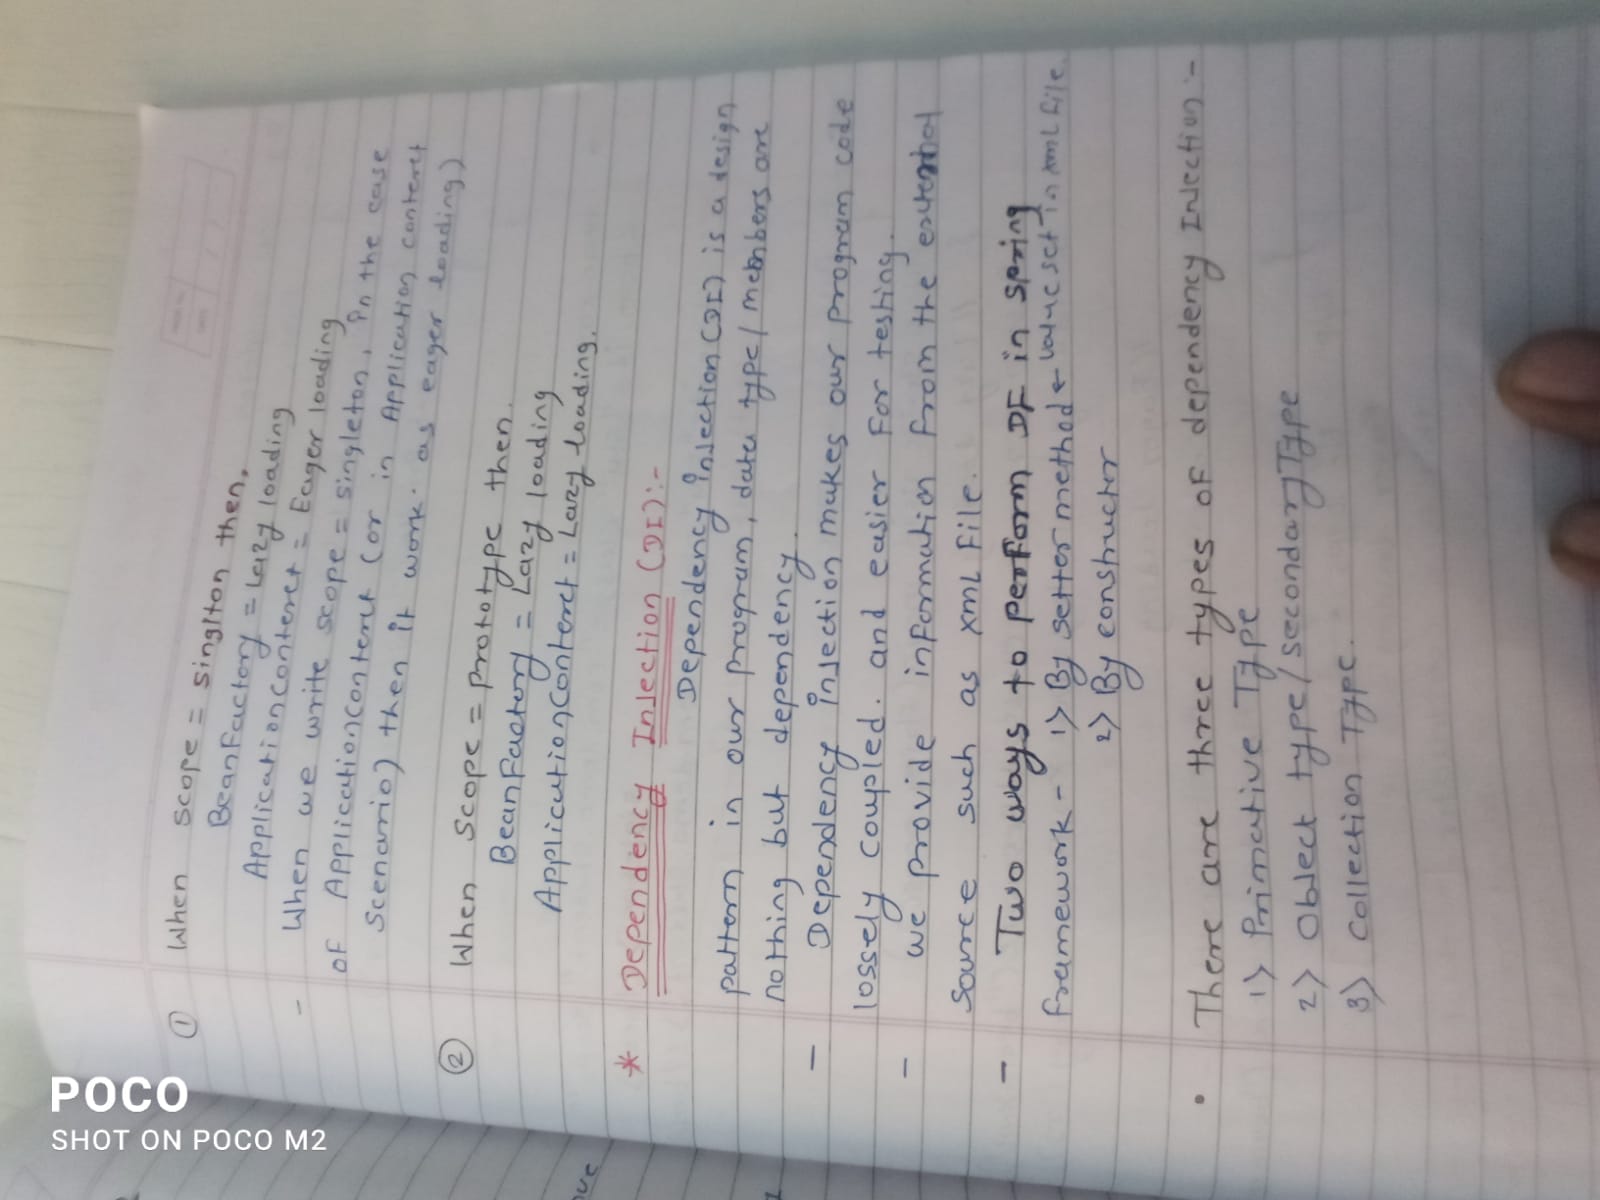 ① When scope = singlton then.
BeanFactory = Lazy loading
ApplicationContenct = Eager loading
- When we write scope = singleton, in the case
of ApplicationContenct (or in Application contenct
Scenario) then it work. as eager loading)
② When scope = prototype then.
BeanFactory = Lazy loading
ApplicationContenct = Lazy loading.
* Dependency Injection (DI):-
Dependency injection (DI) is a design
pattern in our program, data type/members are
nothing but dependency.
- Dependency injection makes our program code
lossely coupled. and easier for testing.
- we provide information from the external
source such as xml file.
- Two ways to perform DF in spring
framework - 1) By setter method ← value set in xml file.
2) By constructor
• There are three types of dependency Injection :-
1) Primative Type
2) Object type/secondary Type
3) Collection Type.
POCO
SHOT ON POCO M2